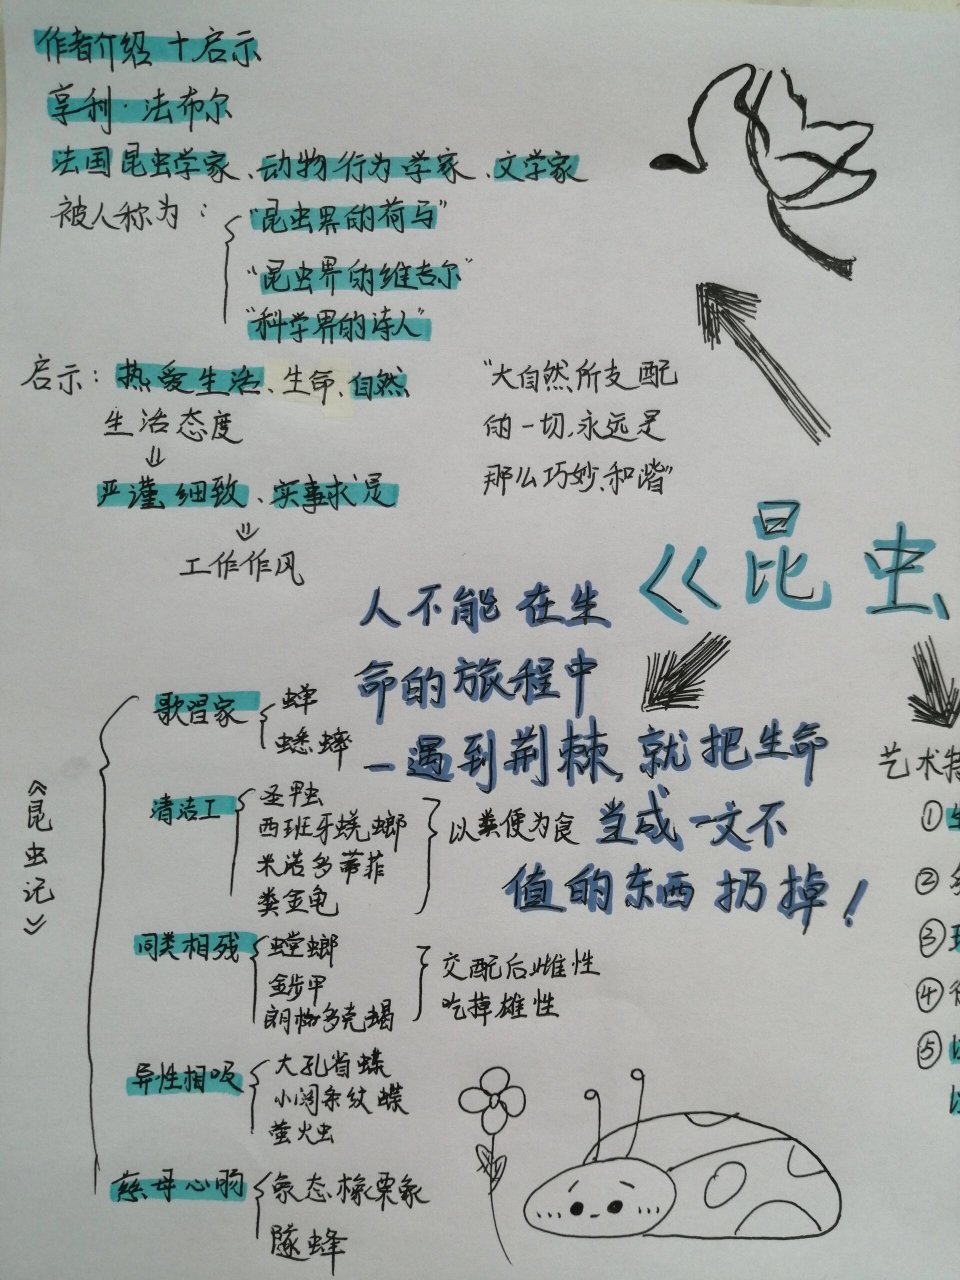 作者介绍+启示
亨利·法布尔
法国昆虫学家、动物行为学家、文学家
被人称为：
"昆虫界的荷马"
"昆虫界的维吉尔"
"科学界的诗人"
启示：热爱生活、生命、自然
生活态度
严谨细致、实事求是
工作作风
"大自然所支配
的一切,永远是
那么巧妙、和谐"
《昆虫
人不能在生
命的旅程中
一遇到荆棘,就把生命
当成一文不
值的东西扔掉！
《昆虫记》
歌唱家
蝉
蟋蟀
清洁工
圣甲虫
西班牙蜣螂
米诺多蒂菲
粪金龟
以粪便为食
同类相残
螳螂
金步甲
朗格多克蝎
交配后雌性
吃掉雄性
异性相吸
大孔雀蝶
小阔条纹蝶
萤火虫
慈母心肠
象态橡栗象
隧蜂
艺术特
①生
②
③
④
⑤以